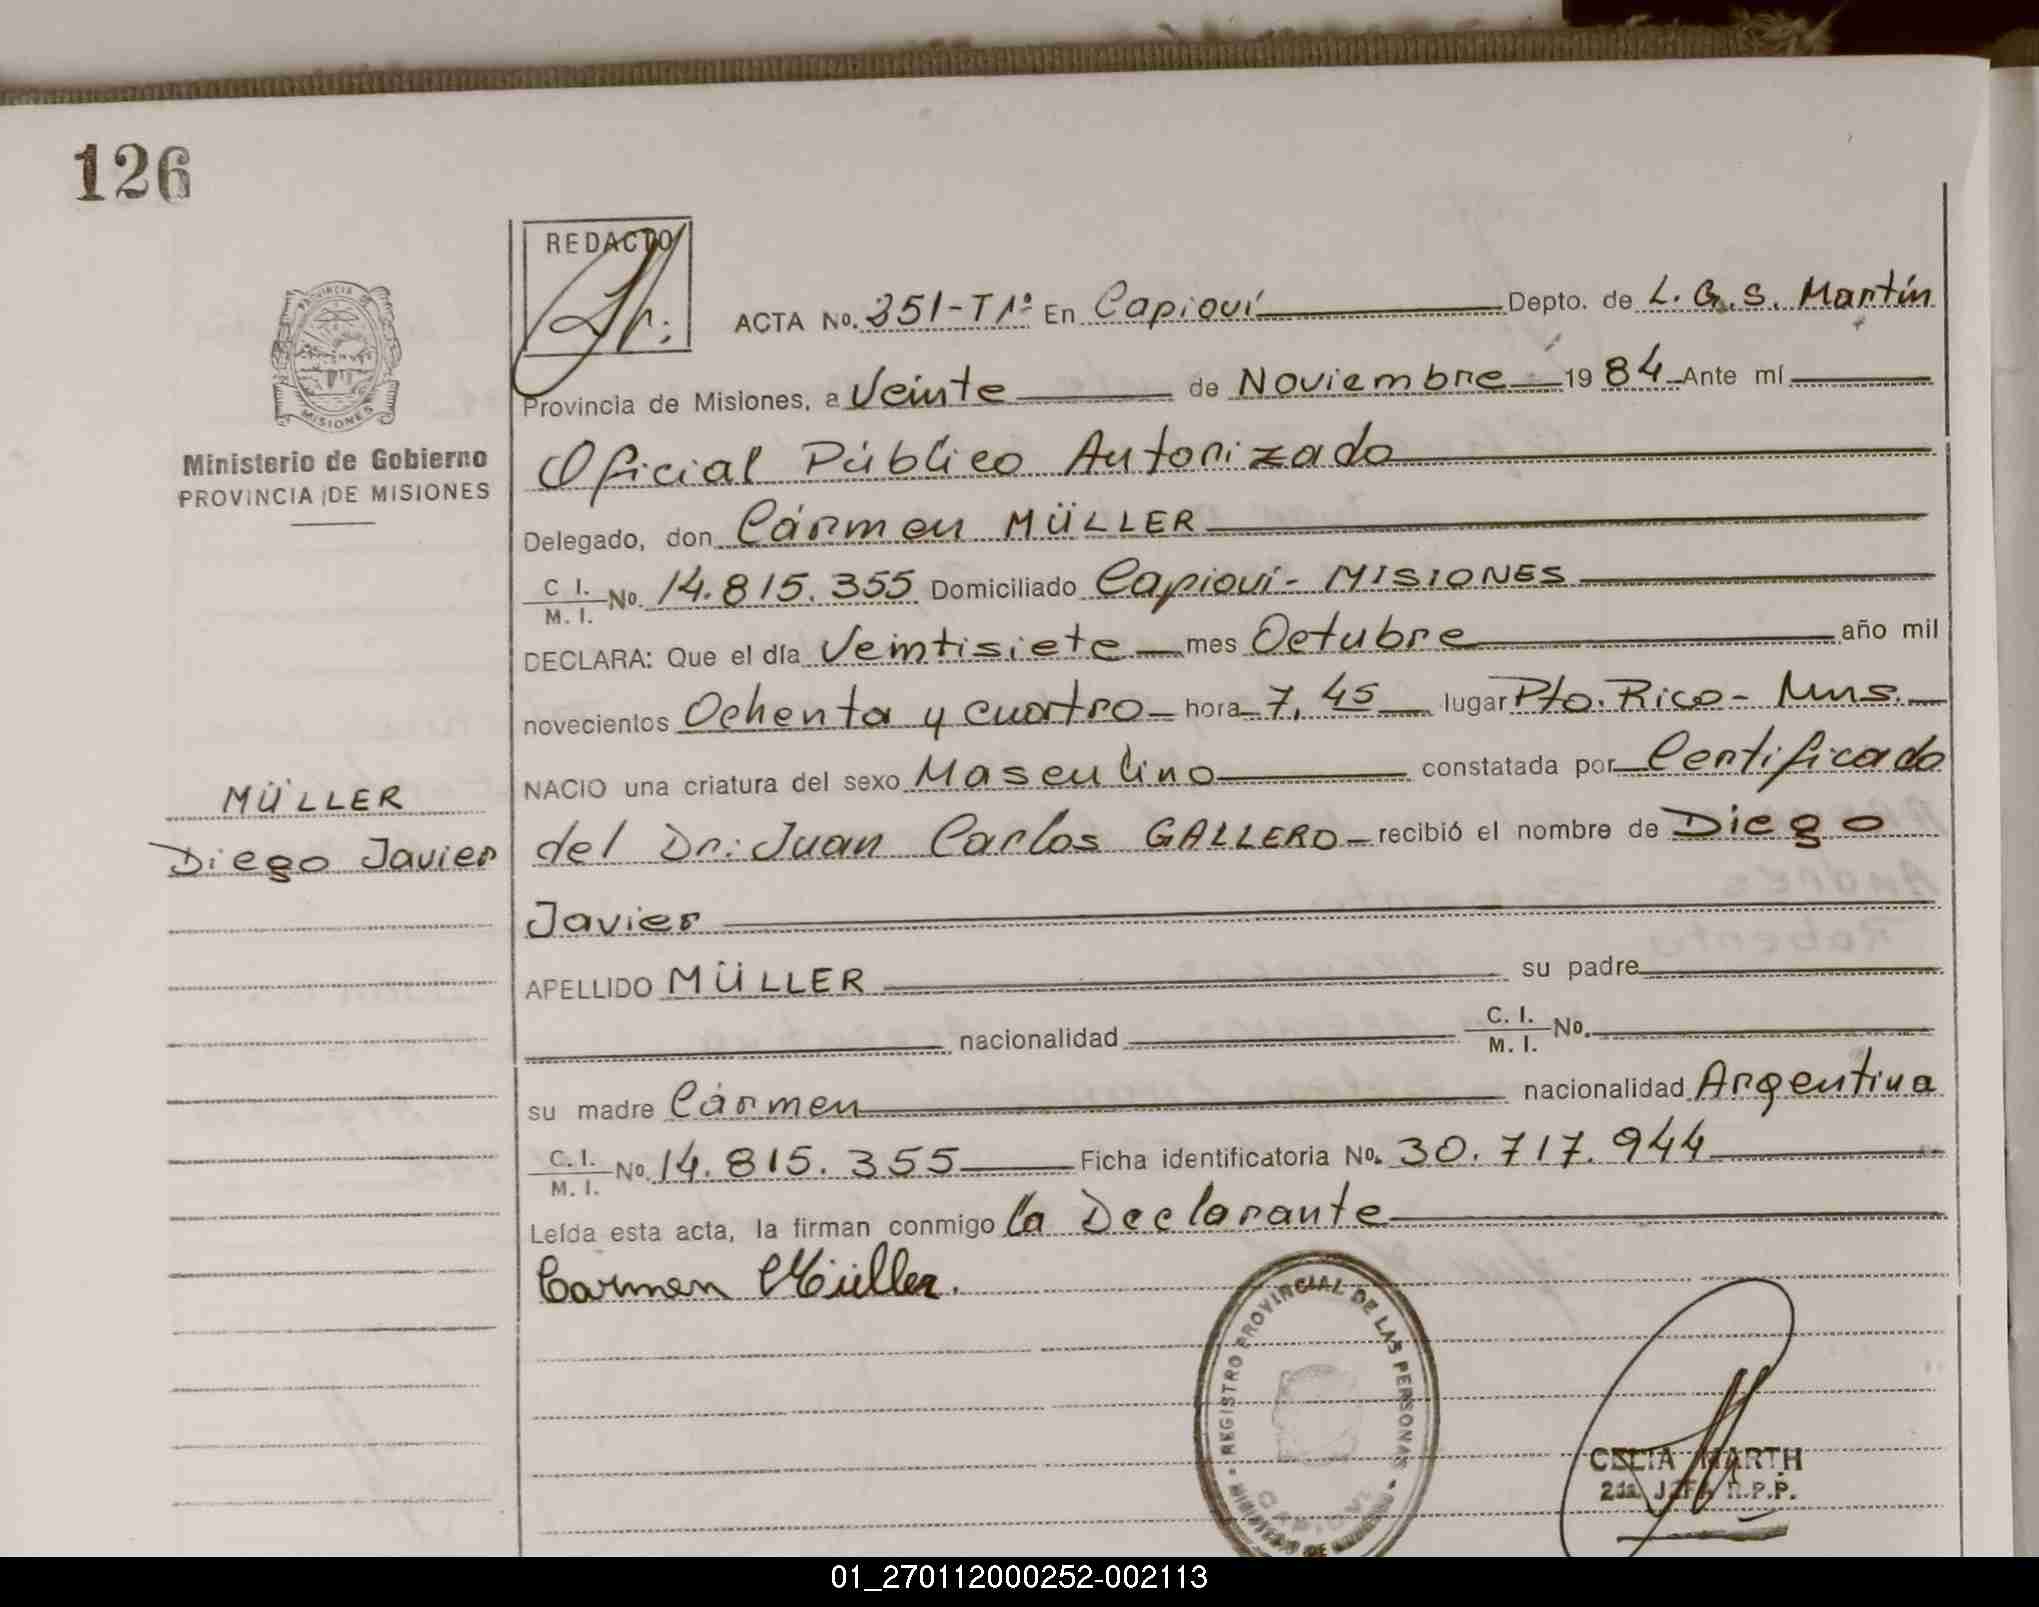 126
REDACTO
ACTA No. 351-T1º En Capioví Depto. de L. G. S. Martín
Provincia de Misiones, a Veinte de Noviembre 1984 Ante mí
Oficial Público Autorizado
Delegado, don Cármen MÜLLER
C. I. / M. I. No. 14.815.355 Domiciliado Capioví - MISIONES
DECLARA: Que el día Veintisiete mes Octubre año mil
novecientos Ochenta y cuatro hora 7,45 lugar Pto. Rico - Mns.
NACIO una criatura del sexo Masculino constatada por Certificado
del Dr: Juan Carlos GALLERO recibió el nombre de Diego
Javier
APELLIDO MÜLLER su padre
nacionalidad C. I. / M. I. No.
su madre Cármen nacionalidad Argentina
C. I. / M. I. No. 14.815.355 Ficha identificatoria No. 30.717.944
Leída esta acta, la firman conmigo la Declarante
Carmen Müller.
PROVINCIA DE
MISIONES
Ministerio de Gobierno
PROVINCIA DE MISIONES
MÜLLER
Diego Javier
REGISTRO PROVINCIAL DE LAS PERSONAS
MINISTERIO DE GOBIERNO
CAPIOVI
CELIA MARTH
2da. JEFA R.P.P.
01_270112000252-002113